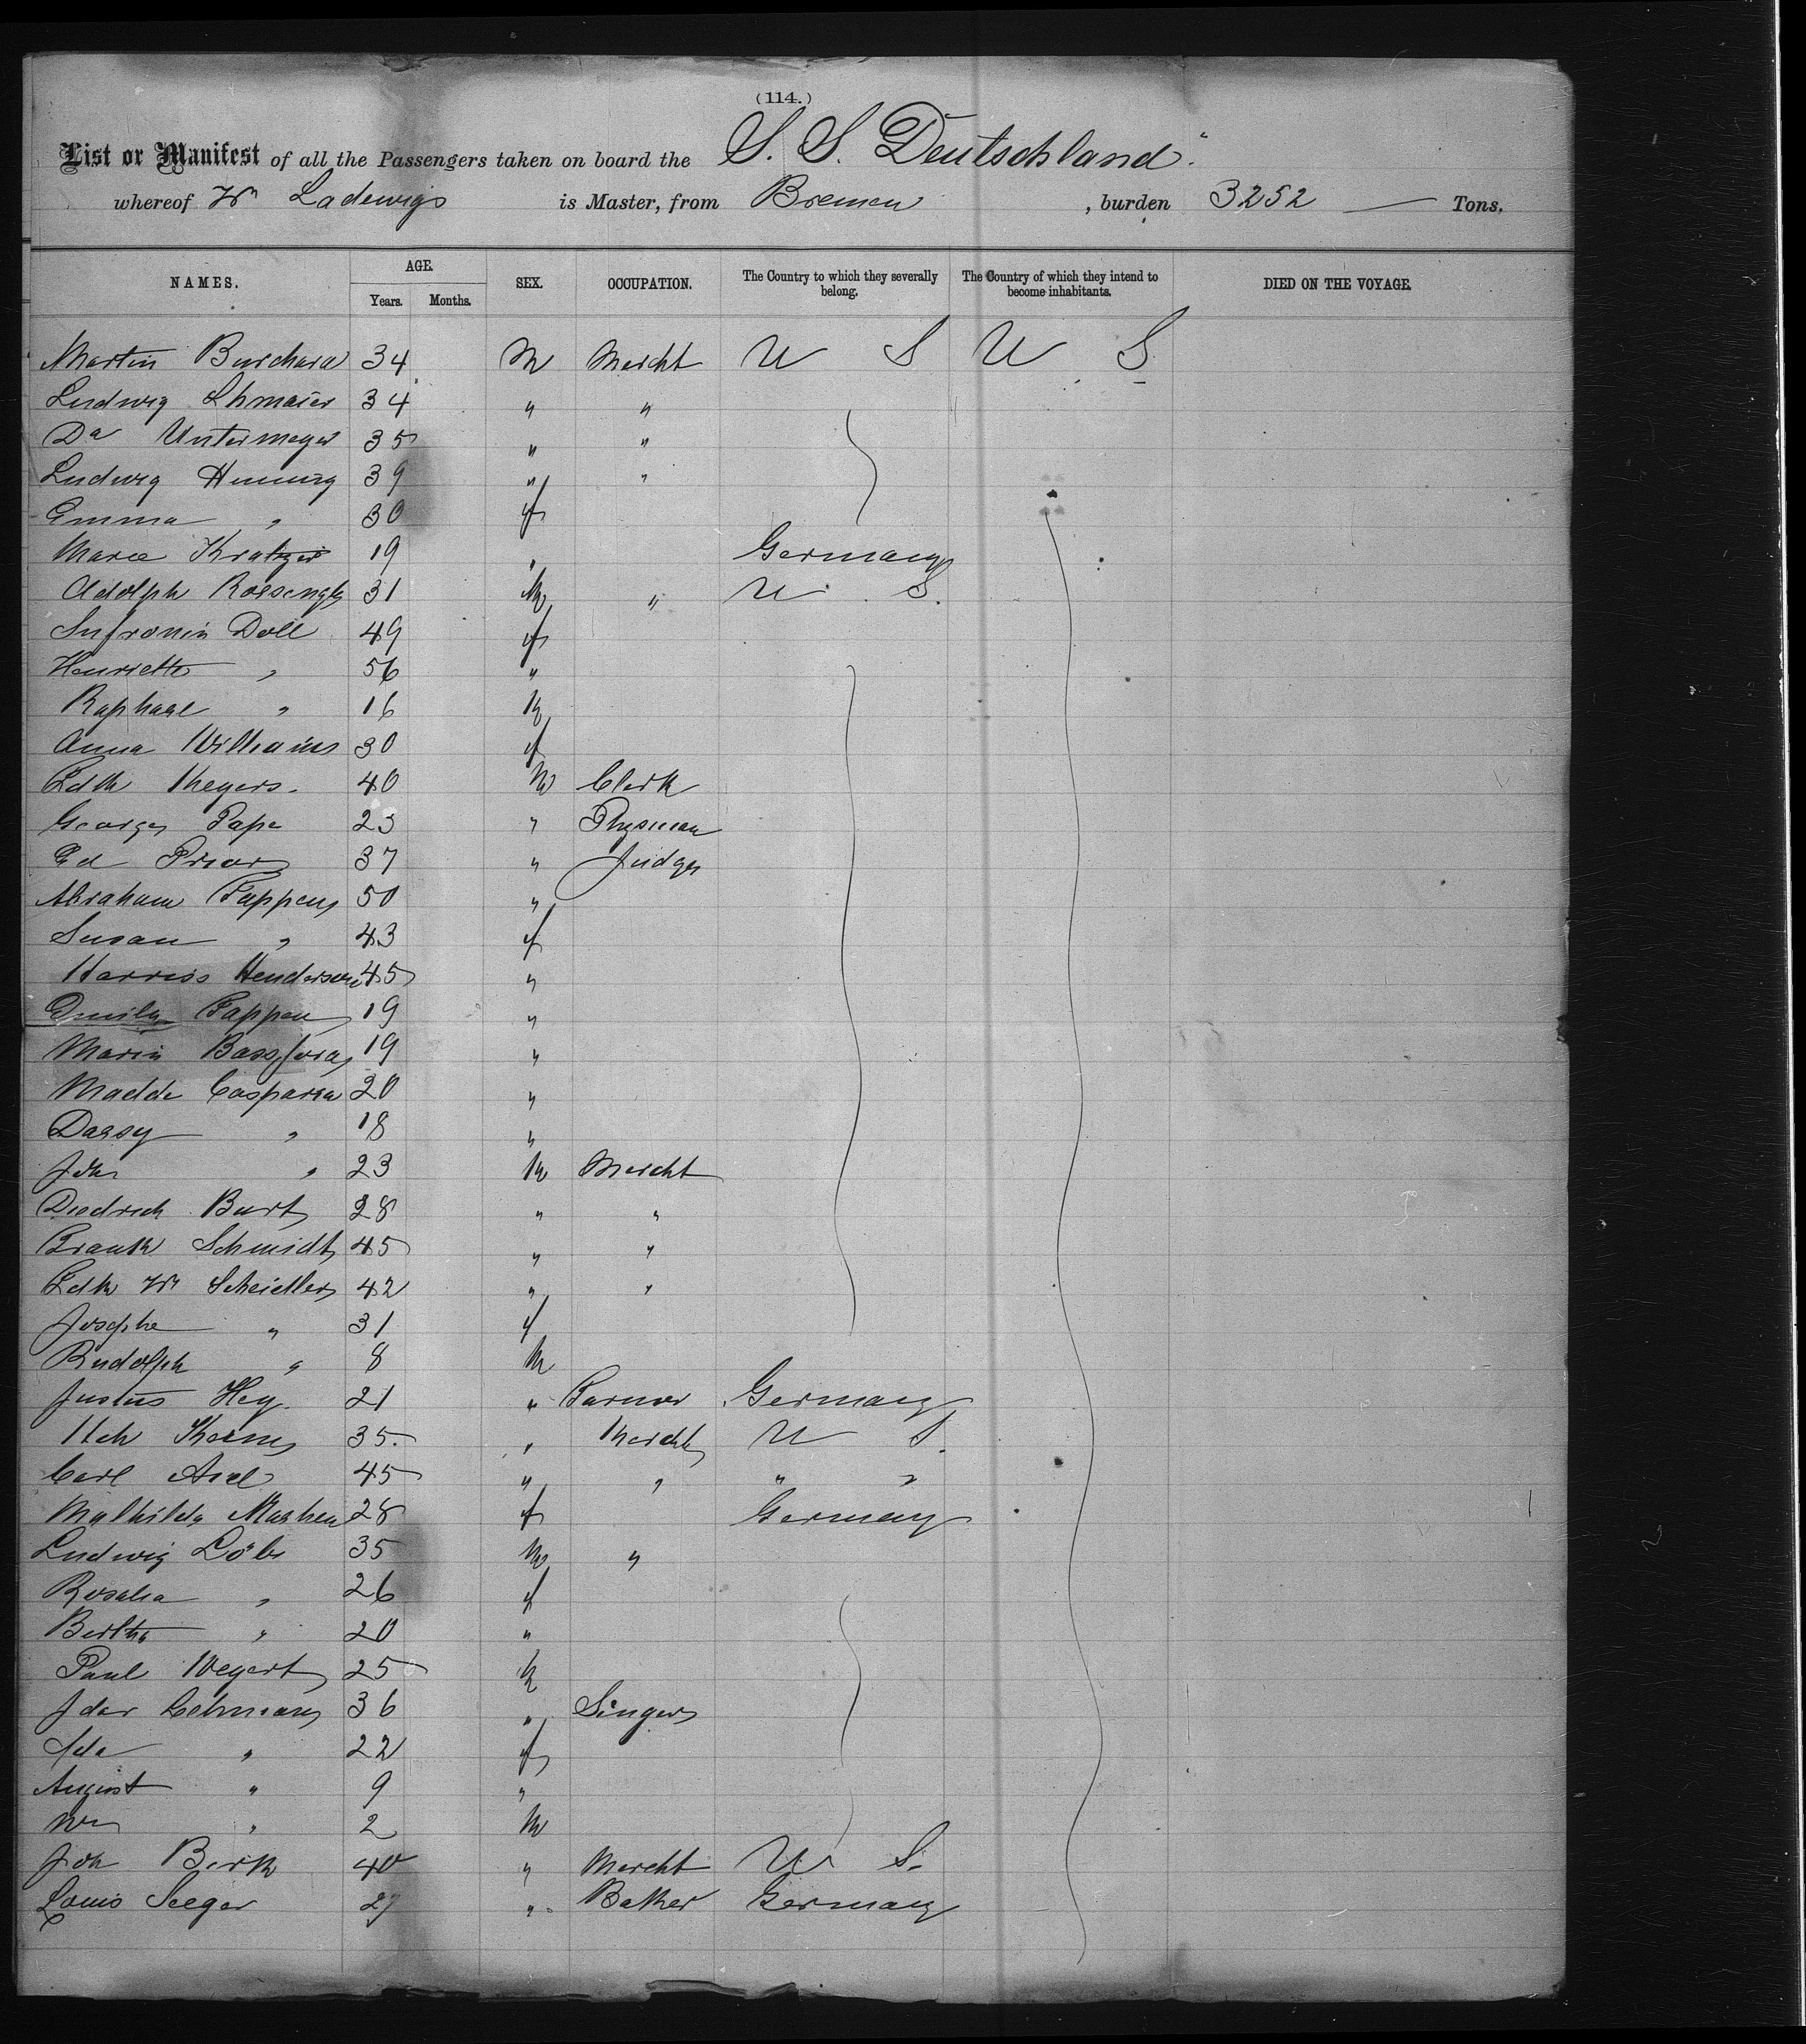 (114.)
List or Manifest of all the Passengers taken on board the S. S. Deutschland
whereof Wm Ladewigs is Master, from Bremen, burden 3252 — Tons.
NAMES. AGE. SEX. OCCUPATION. The Country to which they severally belong. The Country of which they intend to become inhabitants. DIED ON THE VOYAGE.
Years. Months.
Martin Burchard 34 M Mercht U S U S
Ludwig 34 " "
Untermeyer 35 " "
Ludwig Henning 39 " "
Emma " 30 f
Marie 19 " Germany
Adolph 31 M " U. S.
Doll 49 f
Henriette " 56 "
Raphael " 16 M
Anna Williams 30 f
Fdk Meyers. 40 M Clerk
George Pape 23 " Physician
Ed Prior 37 " Judge
Abraham Tappen 50 "
Susan " 43 f
Harriss Henderson 45 "
Emily Tappen 19 "
Maria Bassford 19 "
20 "
Daesy " 18 "
Joh " 23 M Mercht
Diedrich Burt 28 " "
Frank Schmidt 45 " "
Fdk Wm Scheidler 42 " "
Josephe " 31 f
Rudolph " 8 M
Justus Hey. 21 " Farmer Germany
35. " Mercht U S.
Carl 45 " " " "
Mathilda 28 f Germany
Ludwig Löb 35 M "
Rosalia " 26 f
Bertha " 20 "
Paul Wegert 25 M
Lehmann 36 " Singer
Ida " 22 f
August " 9 "
Wm " 2 M
Joh Birk 40 " Mercht U S.
Louis Seeger 27 " Baker Germany